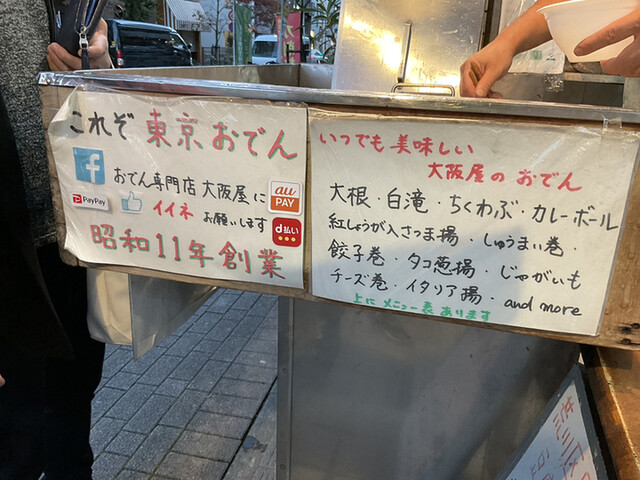 これぞ 東京おでん
おでん専門店 大阪屋に
au
PAY
PayPay
イイネ お願いします
d払い
昭和11年創業
いつでも美味しい
大阪屋のおでん
大根・白滝・ちくわぶ・カレーボール
紅しょうが入さつま揚・しゅうまい巻・
餃子巻・タコ葱揚・じゃがいも
チーズ巻・イタリア揚・and more
上にメニュー表あります